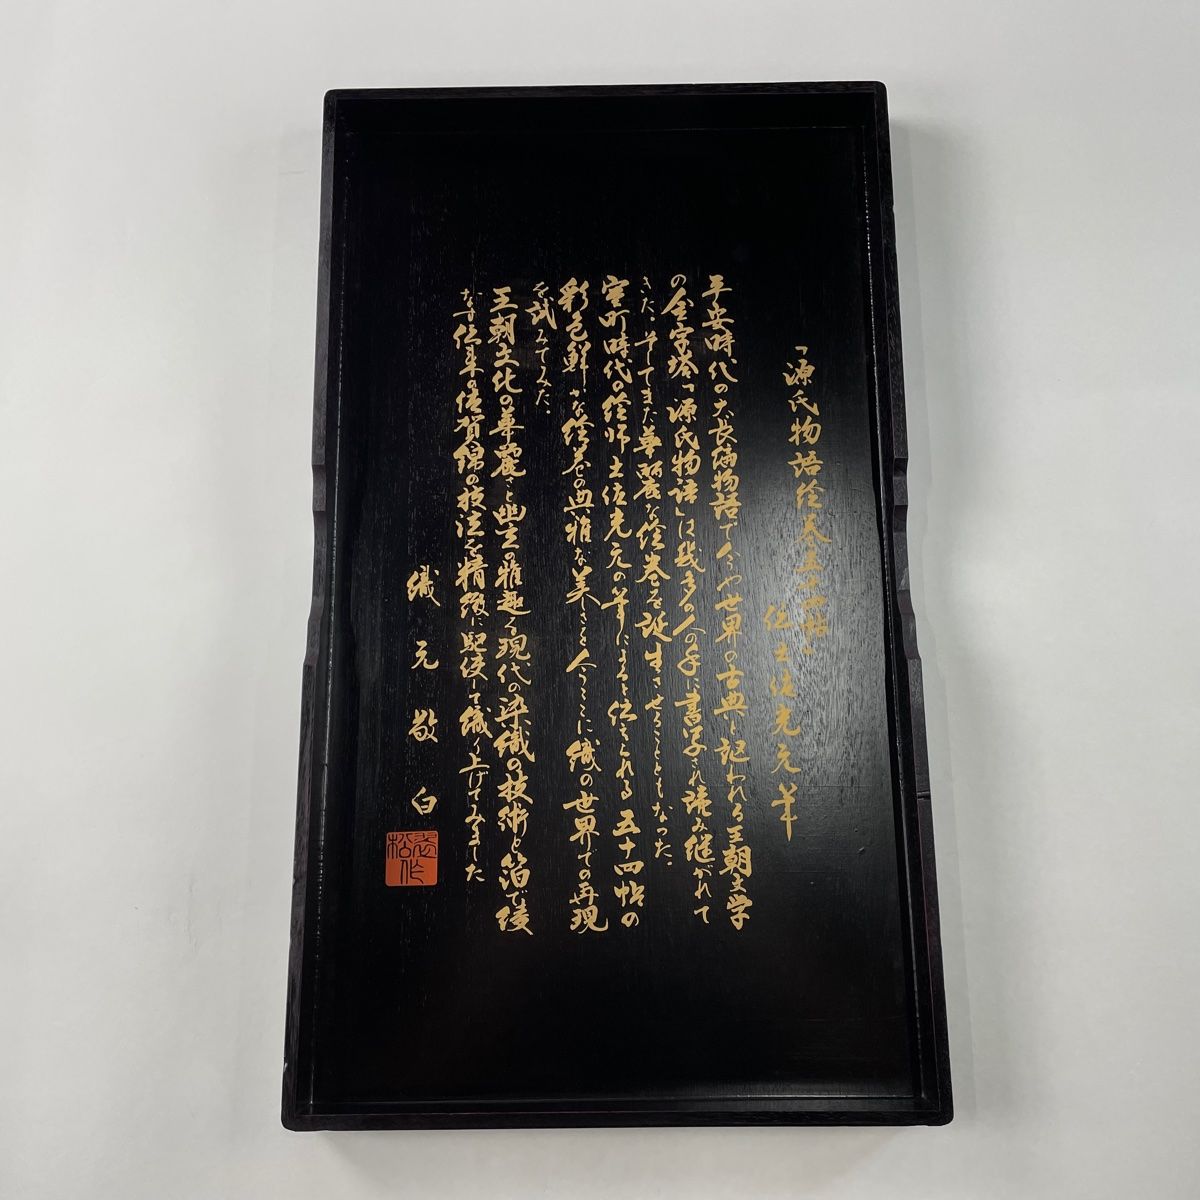 「源氏物語絵巻五十四帖」
伝土佐光元筆
平安時代の大長編物語で今や世界の古典と記われる王朝文学
の金字塔「源氏物語」は幾多の人の手に書写され読み継がれて
きた。そしてまた華麗な絵巻を誕生させることともなった。
室町時代の絵師土佐光元の筆によると伝えられる五十四帖の
彩色鮮かな絵巻の典雅な美しさを今ここに織の世界での再現
を試みてみた。
王朝文化の華麗さと幽玄の雅趣を現代の染織の技術と箔で綾
なす伝来の佐賀錦の技法を精緻に駆使して織り上げてみました
織元敬白